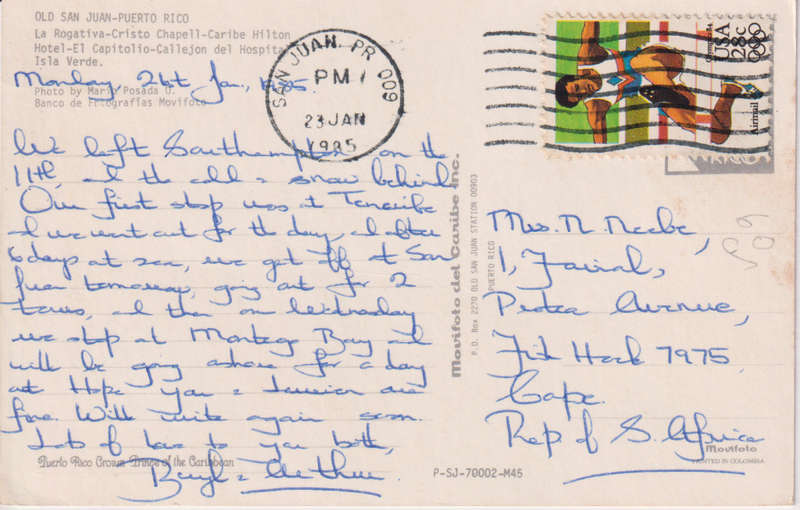 OLD SAN JUAN-PUERTO RICO
La Rogativa-Cristo Chapell-Caribe Hilton
Hotel-El Capitolio-Callejon del Hospital
Isla Verde.
Monday, 21st Jan, 1985.
Photo by Mario Posada O.
Banco de Fotografias Movifoto
We left Southampton on the
11th, and the cold & snow behind
Our first stop was at Tenerife
& we went out for the day, and after
6 days at sea, we get off at San
Juan tomorrow, going out for 2
tours, and then on Wednesday
we stop at Montego Bay and
will be going ashore for a day
out. Hope you &
are
fine. Will write again soon.
Lots of love to you both,
Beryl & Arthur
Puerto Rico Crown Prince of the Caribbean
SAN JUAN, PR 009
PM
23 JAN
1985
Movifoto del Caribe Inc.
P.O. Box 2270 OLD SAN JUAN STATION 00903
PUERTO RICO
P-SJ-70002-M45
USA
28c
Olympics 84
Airmail
Mrs. M. Neebe,
1, Fairal,
Avenue,
Fish Hoek 7975
Cape.
Rep of S. Africa
Movifoto
PRINTED IN COLOMBIA